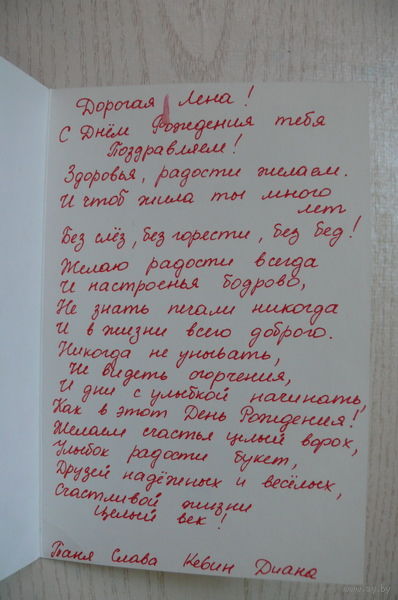 Дорогая Лена!
С Днём Рождения тебя
Поздравляем!
Здоровья, радости желаем.
И чтоб жила ты много
лет
Без слёз, без горести, без бед!
Желаю радости всегда
И настроенья бодрого,
Не знать печали никогда
И в жизни всего доброго.
Никогда не унывать,
Не видеть огорчения,
И дни с улыбкой начинать,
Как в этот День Рождения!
Желаем счастья целый ворох,
Улыбок радости букет,
Друзей надёжных и весёлых,
Счастливой жизни
Целый век!
Таня Слава Кевин Диана
ay.by